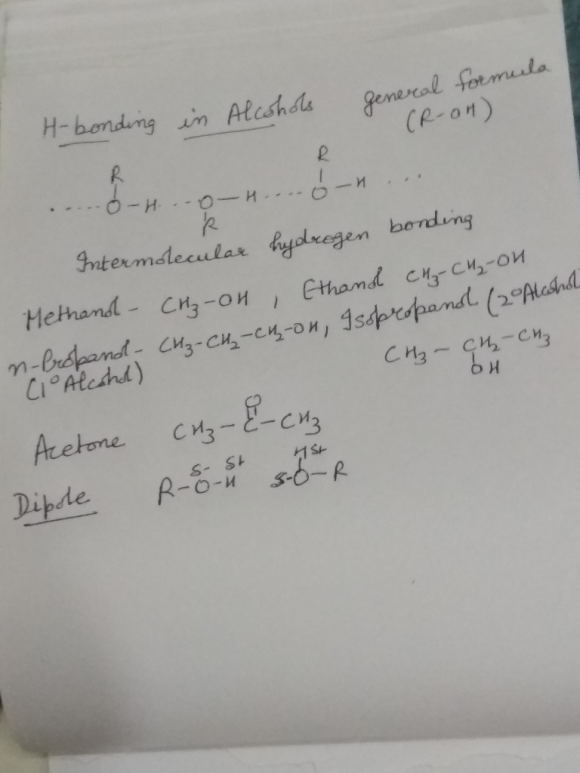 H-bonding in Alcohols general formula
(R-OH)
R R
.....O-H...O-H....O-H...
R
Intermolecular hydrogen bonding
Methanol - CH3-OH, Ethanol CH3-CH2-OH
n-Propanol- CH3-CH2-CH2-OH, Isopropanol (2°Alcohol)
(1°Alcohol) CH3-CH2-CH3
OH
O
Acetone CH3-C-CH3
δ- δ+ H δ+
Dipole R-O-H δ-O-R